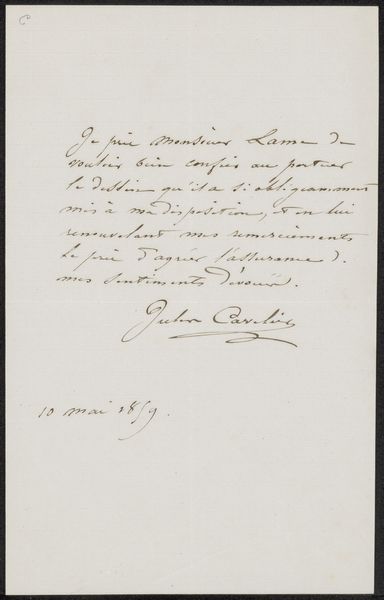 C
Je prie Monsieur Lame de
vouloir bien confier au porteur
le dessin qu'il a si obligeamment
mis à ma disposition, et en lui
renouvelant mes remerciements
le prie d'agréer l'assurance de
mes sentiments dévoués.
Jules Cavelier
10 mai 1859.